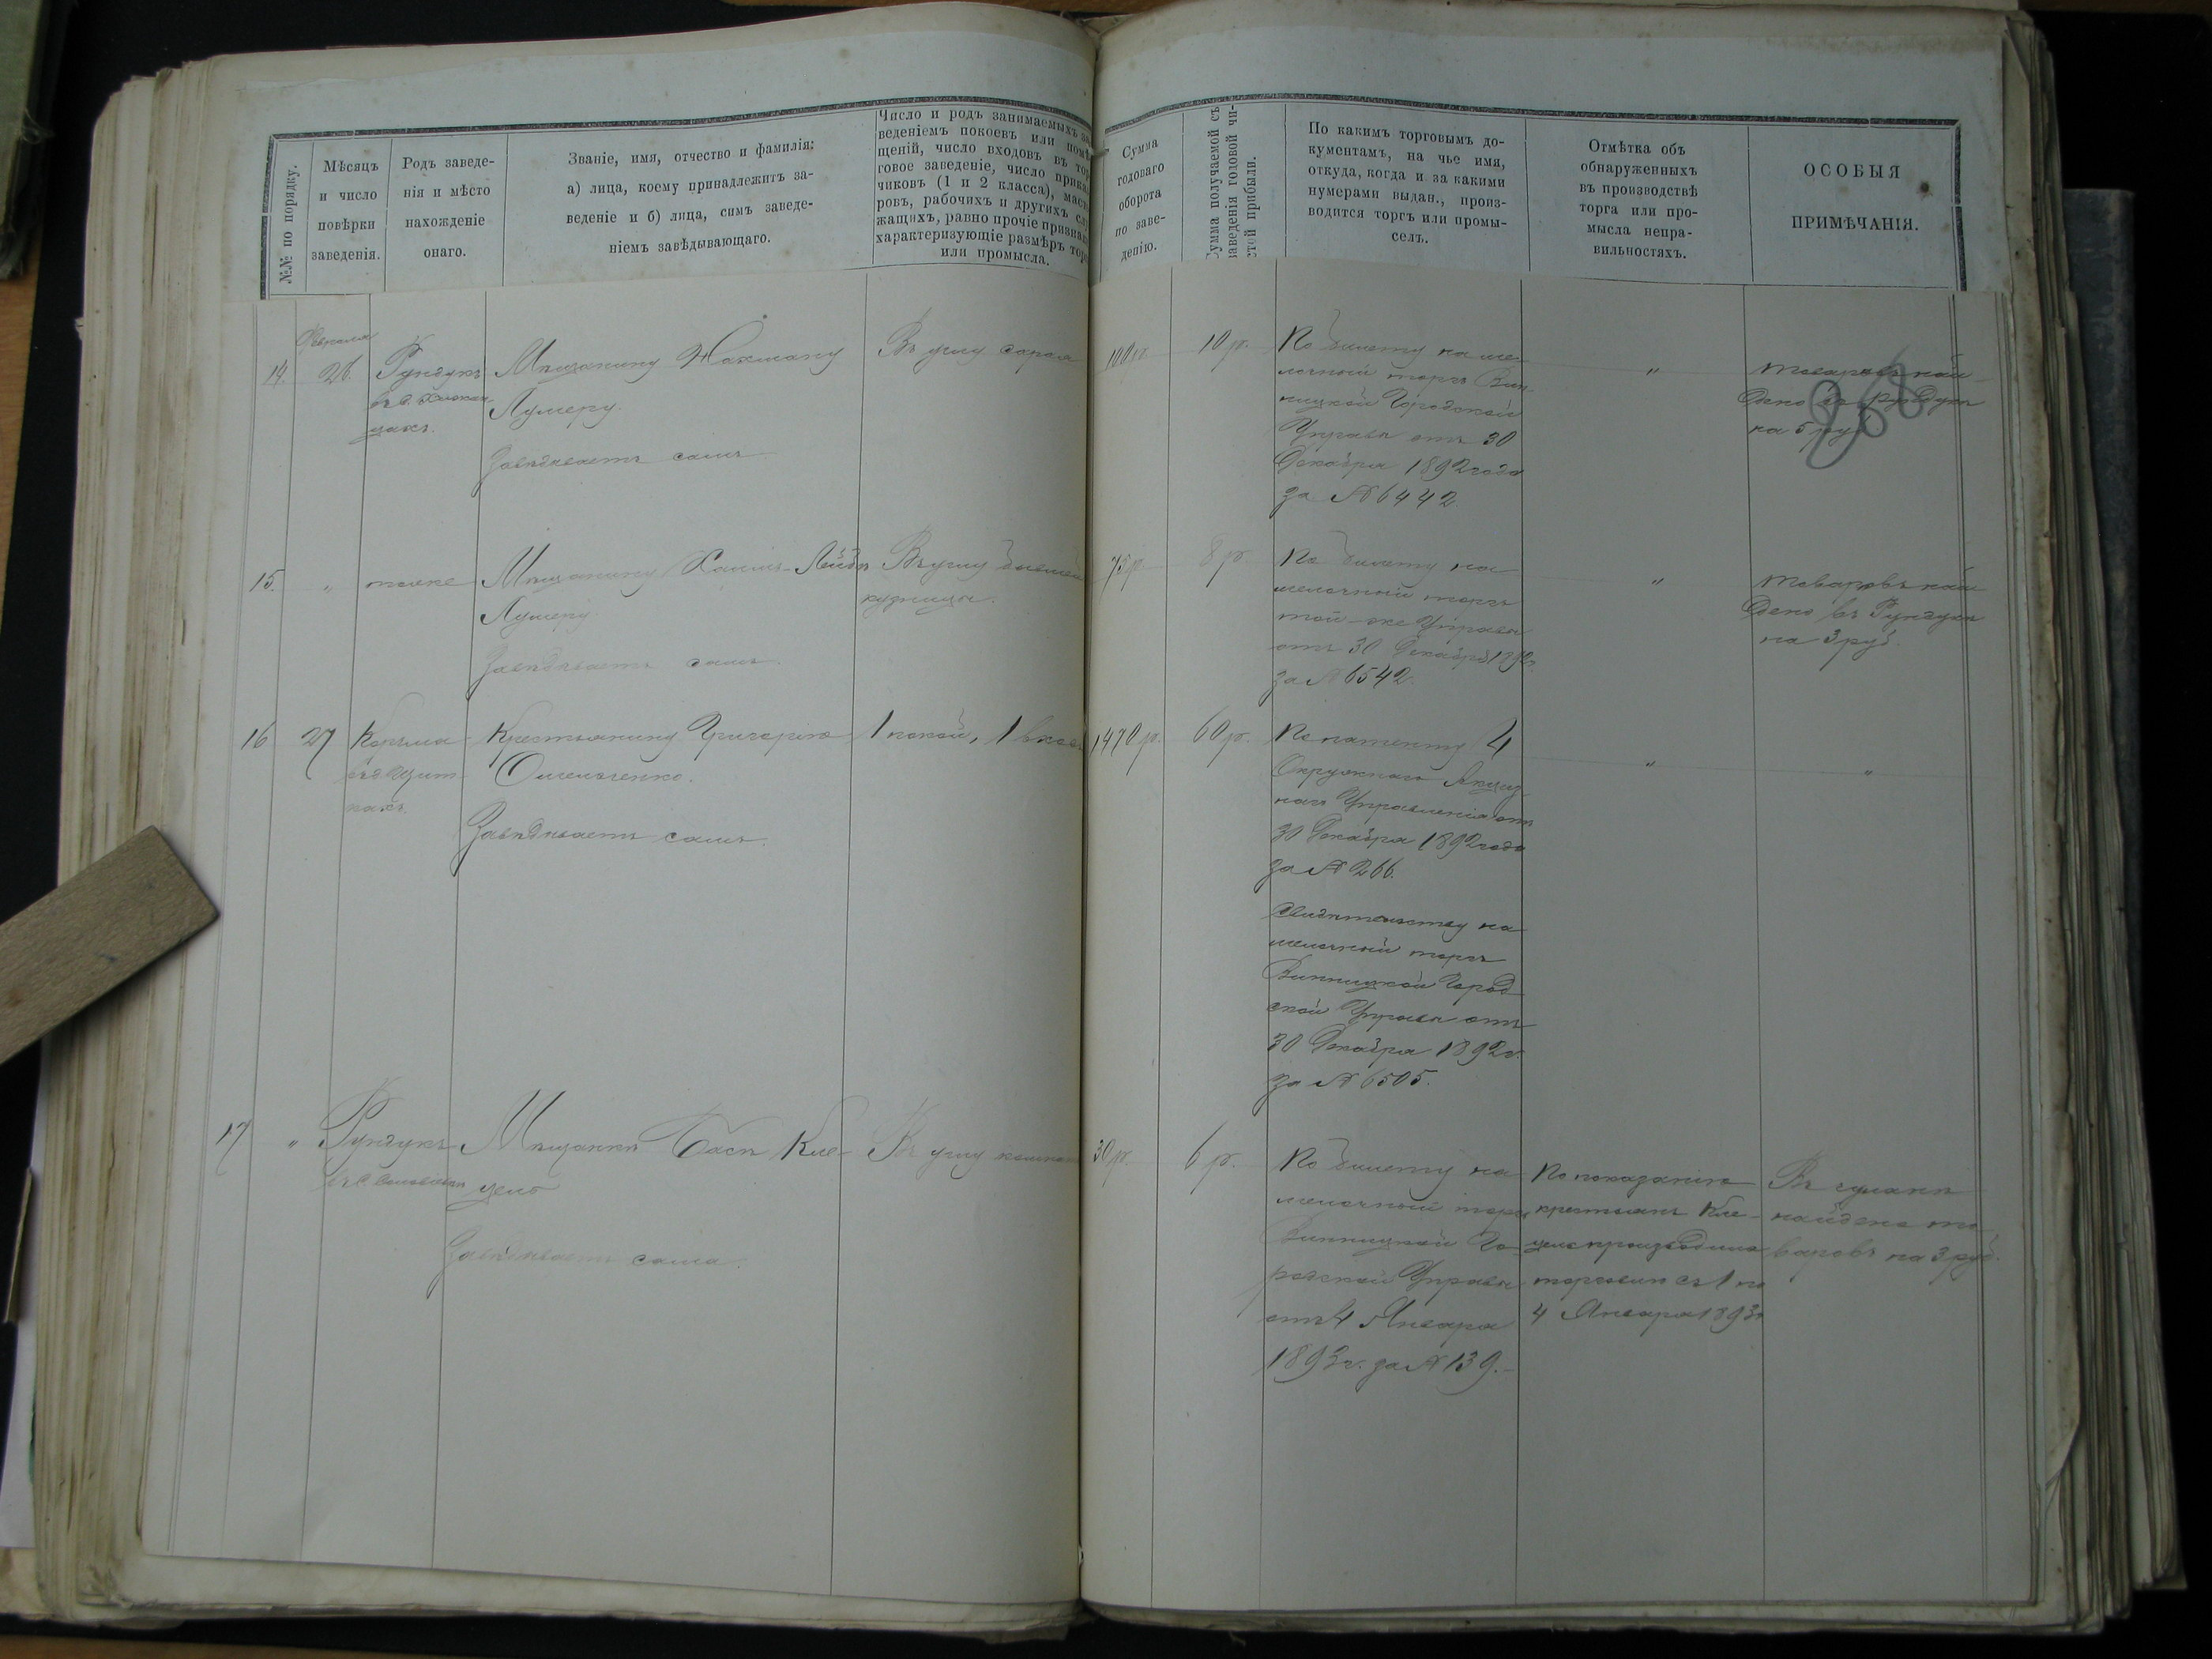 №№ по порядку.
Мѣсяцъ
и число
повѣрки
заведенія.
Родъ заведе-
нія и мѣсто
нахожденіе
онаго.
Званіе, имя, отчество и фамилія:
а) лица, коему принадлежитъ за-
веденіе и б) лица, симъ заведе-
ніемъ завѣдывающаго.
Число и родъ занимаемыхъ за-
веденіемъ покоевъ или помѣ-
щеній, число входовъ въ тор-
говое заведеніе, число прика-
чиковъ (1 и 2 класса), масте-
ровъ, рабочихъ и другихъ слу-
жащихъ, равно прочіе признаки
характеризующіе размѣръ торга
или промысла.
Сумма
годоваго
оборота
по заве-
денію.
Сумма получаемой съ
заведенія годовой чи-
стой прибыли.
По какимъ торговымъ до-
кументамъ, на чье имя,
откуда, когда и за какими
нумерами выдан., произ-
водится торгъ или промы-
селъ.
Отмѣтка объ
обнаруженныхъ
въ производствѣ
торга или про-
мысла непра-
вильностяхъ.
ОСОБЫЯ
ПРИМѢЧАНІЯ.
14.
Февраля
26.
Рундукъ
въ с.
Мѣщанину Нахману
Лумеру.
Завѣдываетъ самъ.
Въ углу сарая
100 р.
10 р.
По билету на ме-
лочный торгъ Вин-
ницкой Городской
Управы отъ 30
Декабря 1892 года
за № 6442.
"
товаровъ най-
дено въ рундукѣ
на 5 руб.
15.
"
тоже
Мѣщанину Хаимъ-Лейбѣ
Лумеру
Завѣдываетъ самъ.
Въ углу бывшей
кузницы.
75 р.
8 р.
По билету на
мелочный торгъ
той-же Управы
отъ 30 Декабря 1892г.
за № 6542.
"
товаровъ най-
дено въ Рундукѣ
на 3 руб.
16
27
Корчма
Крестьянину Григорію
Омельченко.
Завѣдываетъ самъ.
1 покой, 1 входъ
1470 р.
60 р.
По патенту 4
Окружнаго Акциз-
наго Управленія отъ
30 Декабря 1892 года
за № 266.
Свидѣтельству на
мелочный торгъ
Винницкой Город-
ской Управы отъ
30 Декабря 1892 г.
за № 6505.
"
"
17
"
Рундукъ
въ с.
Мѣщанкѣ Басѣ Кле-
цель
Завѣдываетъ сама.
Въ углу комнаты
30 р.
6 р.
По билету на
мелочный торгъ
Винницкой Го-
родской Управы
отъ 4 Января
1893 г. за № 139.
По показанію
крестьянъ Кле-
цель производила
торговлю съ 1 по
4 Января 1893 г.
найдено то-
варовъ на 3 руб.